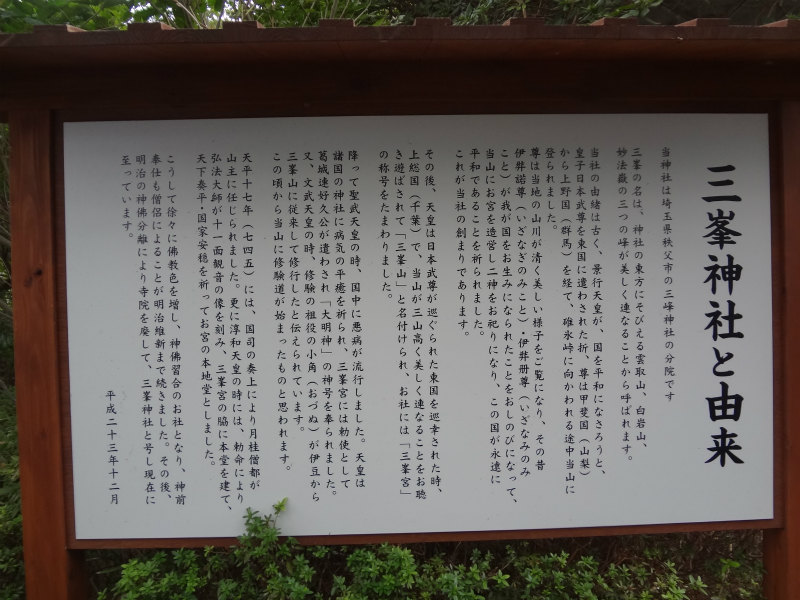 三峯神社と由来
当神社は埼玉県秩父市の三峰神社の分院です
三峯の名は、神社の東方にそびえる雲取山、白岩山、
妙法嶽の三つの峰が美しく連なることから呼ばれます。
当社の由緒は古く、景行天皇が、国を平和になさろうと、
皇子日本武尊を東国に遣わされた折、尊は甲斐国（山梨）
から上野国（群馬）を経て、碓氷峠に向かわれる途中当山に
登られました。
尊は当地の山川が清く美しい様子をご覧になり、その昔
伊弉諾尊（いざなぎのみこと）・伊弉册尊（いざなみのみ
こと）が我が国をお生みになられたことをおしのびになって、
当山にお宮を造営し二神をお祀りになり、この国が永遠に
平和であることを祈られました。
これが当社の創まりであります。
その後、天皇は日本武尊が巡ぐられた東国を巡幸された時、
上総国（千葉）で、当山が三山高く美しく連なることをお聴
き遊ばされて「三峯山」と名付けられ、お社には「三峯宮」
の称号をたまわりました。
降って聖武天皇の時、国中に悪病が流行しました。天皇は
諸国の神社に病気の平癒を祈られ、三峯宮には勅使として
葛城連好久公が遣わされ「大明神」の神号を奉られました。
又、文武天皇の時、修験の祖役の小角（おづぬ）が伊豆から
三峯山に従来して修行したと伝えられています。
この頃から当山に修験道が始まったものと思われます。
天平十七年（七四五）には、国司の奏上により月桂僧都が
山主に任じられました。更に淳和天皇の時には、勅命により
弘法大師が十一面観音の像を刻み、三峯宮の脇に本堂を建て、
天下泰平・国家安穏を祈ってお宮の本地堂としました。
こうして徐々に佛教色を増し、神佛習合のお社となり、神前
奉仕も僧侶によることが明治維新まで続きました。その後、
明治の神佛分離により寺院を廃して、三峯神社と号し現在に
至っています。
平成二十三年十二月